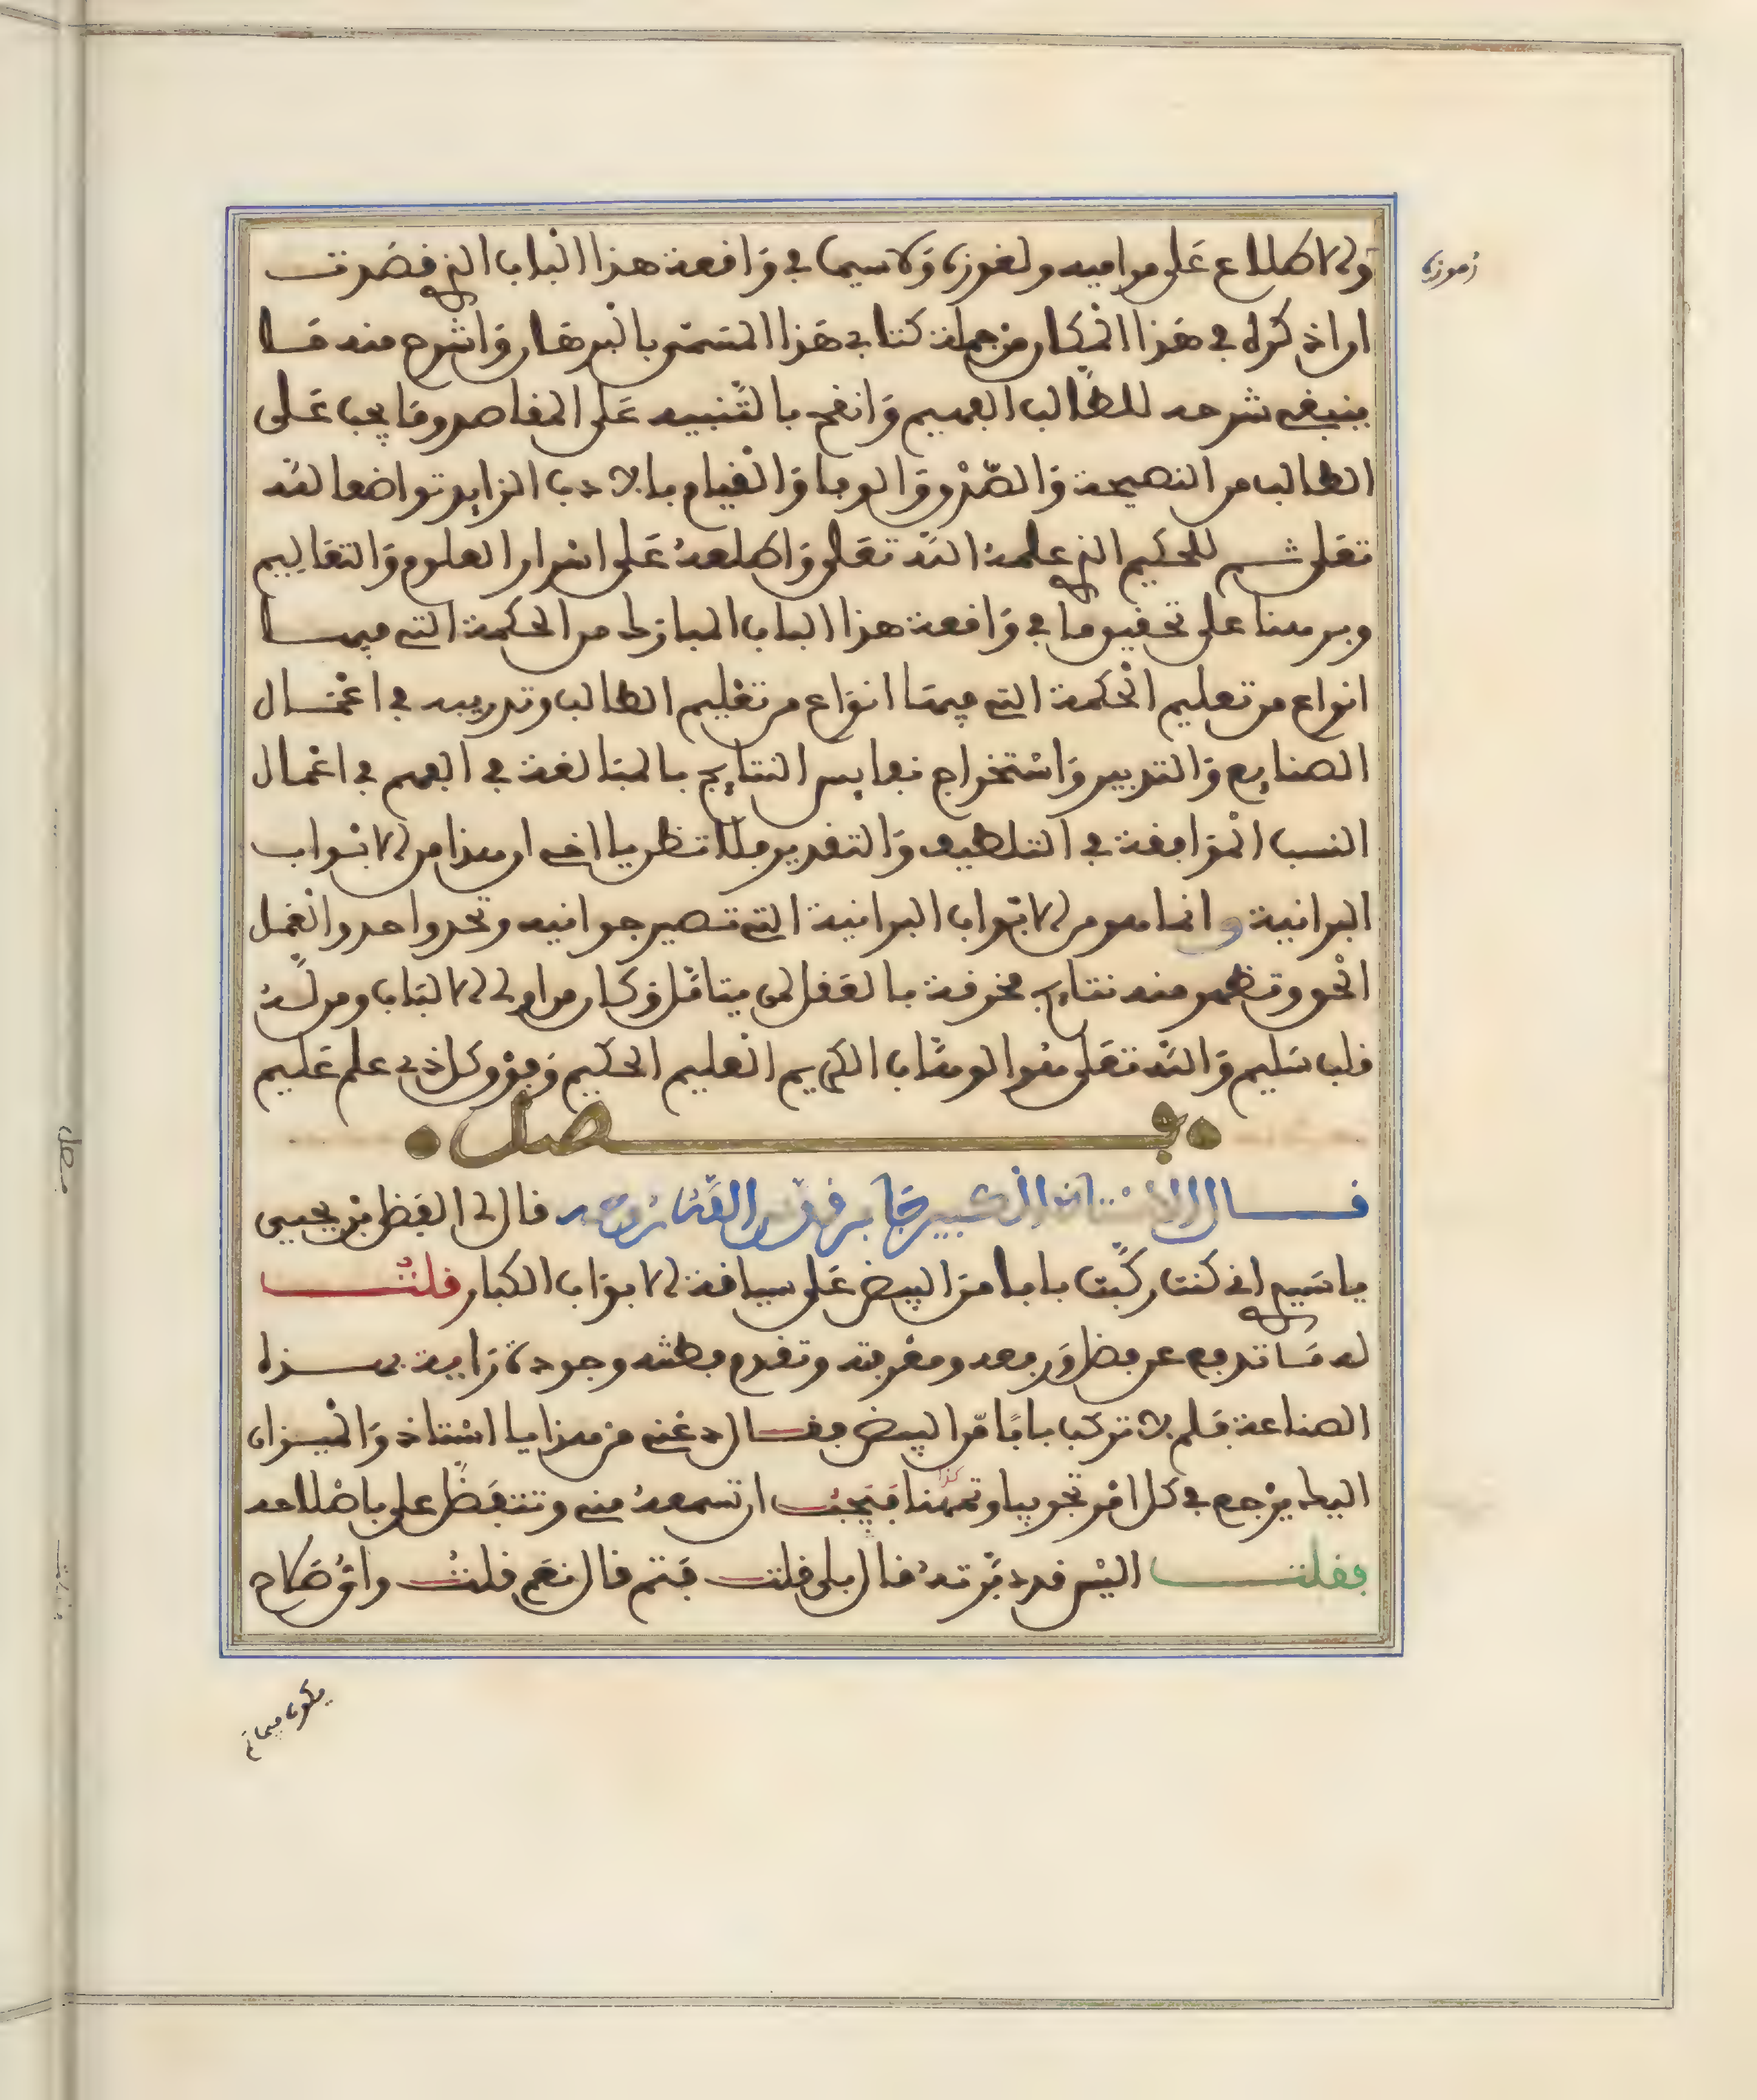 والاطلاع على مراميه ولغوزه ولاسيما في واقعة هذا الباب الذي قصدت
رموزه
ان اذكره في هذا المكان من جملة كتابي هذا المسمى بالبرهان واشرح منه ما
ينبغي شرحه للطالب الفهيم وانعم بالتنبيه على المقاصد وما يجب على
الطالب من النصيحة والصدق والوفا والقيام بالادب الزايد تواضعا لله
تعلى ثم للحكيم الذي علمه الله تعلى واطلعه على اسرار العلوم والتعاليم
وبرهنا على تحقيق ما في واقعة هذا الباب المبارك من الحكمة التي فيها
انواع من تعليم الحكمة التي فيها انواع من تعليم الطالب وتدريبه في اعمال
الصنايع والتدبير واستخراج نفايس النتايج بالمبالغة في الفهم في اعمال
النسب الموافقة في التلطيف والتقدير فلا تظن يا اخي ان هذا من الابواب
البرانية وانما هو من الابواب البرانية التي تصير جوانيه وتحد واحد والعمل
الحق وتظهر منه نتايج محرقة بالعقل لمن يتامل وكان من اولي الالباب ومن له
قلب سليم والله تعلى هو الوهاب الكريم العليم الحكيم وفوق كل ذي علم عليم
فصل
قال الاستاذ الكبير جابر قدس الله روحه قال لي الفضل بن يحيى
يا سيدي اني كنت ركبت بابا من البيض على سياقة الابواب الكبار فلت
له ما تدفع عن فضل ورفعه ومعرفته وتقدم فطنته وجودة زايدة بهذه
الصناعة فلم لا تركب بابا من البيض فقال دعني من هذا يا استاذ والميزان
اليك يرجع في كل امر تجريبا وتمهنا فيجب ان تسمعه مني وتتفضل علي باصلاحه
كذا
فقلت اليس قد دبرته قال بلى قلت فتم قال نعم قلت واي صلاح
يكون فيما تم